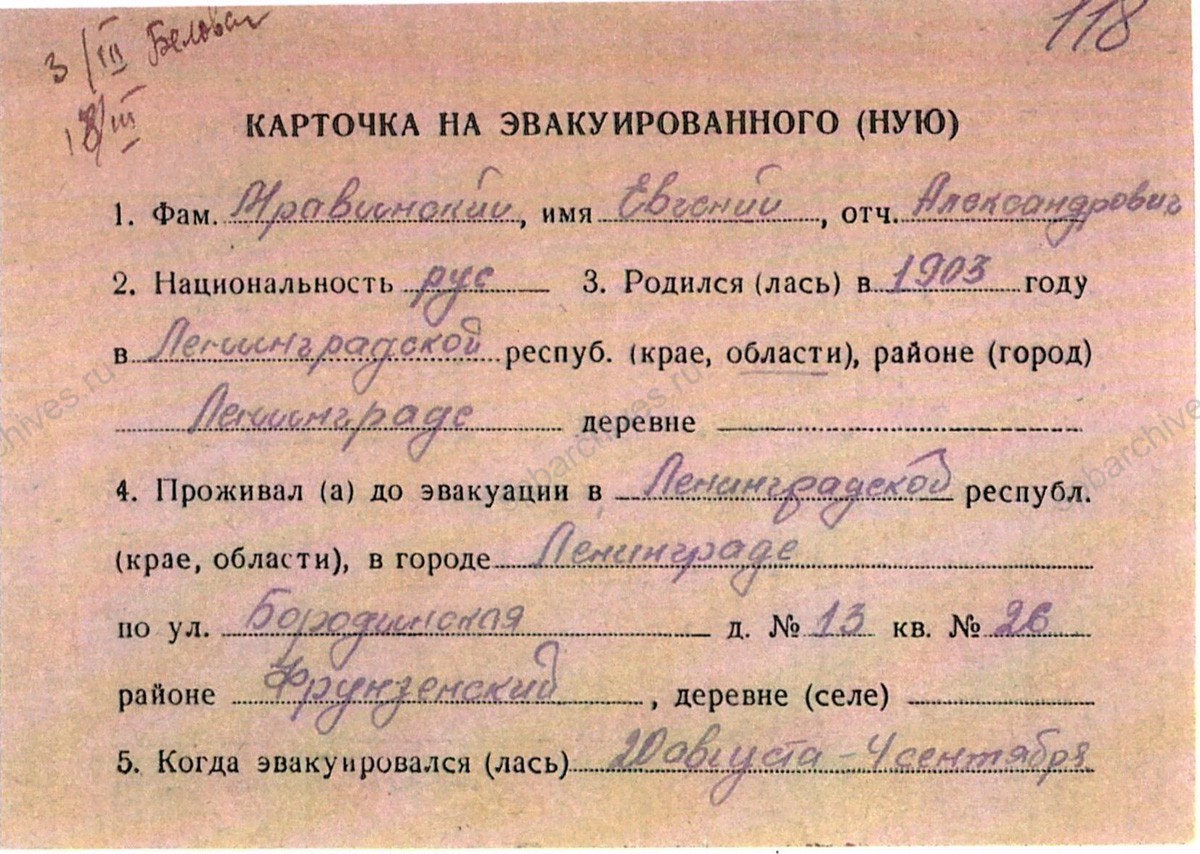 118
3/III Белова
18/III
КАРТОЧКА НА ЭВАКУИРОВАННОГО (НУЮ)
1. Фам. Мравинский, имя Евгений, отч. Александрович
2. Национальность рус 3. Родился (лась) в 1903 году
в Ленинградской респуб. (крае, области), районе (город)
Ленинграде деревне
4. Проживал (а) до эвакуации в Ленинградской республ.
(крае, области), в городе Ленинграде
по ул. Бородинская д. № 13 кв. № 26
районе Фрунзенский, деревне (селе)
5. Когда эвакуировался (лась) 20 августа - 4 сентября